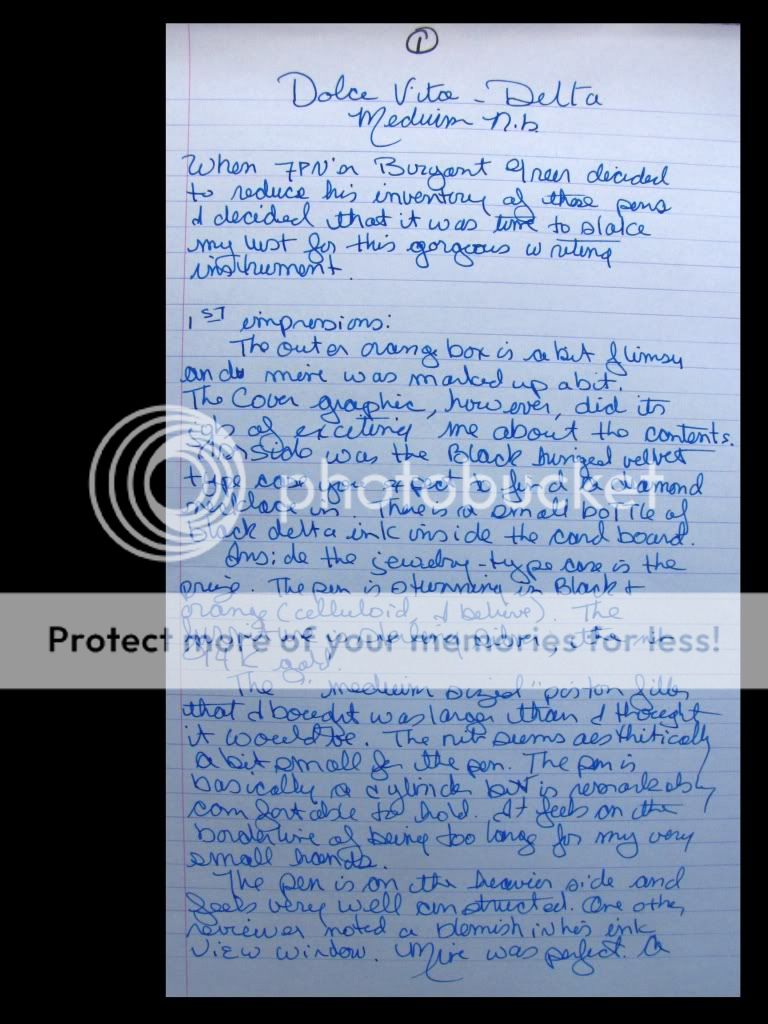 ①
Dolce Vita - Delta
Meduim Nib
When FPN'er Buryant Greer decided
to reduce his inventory of these pens
I decided that it was time to slake
my lust for this gorgeous writing
instrument.
1ST impressions:
The outer orange box is a bit flimsy
and mine was marked up a bit.
The Cover graphic, however, did its
job of exciting me about the contents.
Inside was the Black hinged velvet
type case you expect to find a diamond
necklace in. There is a small bottle of
Black delta ink inside the card board.
Inside the jewelry-type case is the
prize. The pen is stunning in Black &
orange (celluloid, I belive). The
photobucket
Protect more of your memories for less!
14K gold.
The "meduim sized" piston filler
that I bought was larger than I thought
it would be. The nib seems aesthitically
a bit small for the pen. The pen is
basically a cylinder but is remarkably
comfortable to hold. It feels on the
borderline of being too long for my very
small hands.
The pen is on the heavier side and
feels very well constructed. One other
reviewer noted a blemish in his ink
view window. Mine was perfect. A